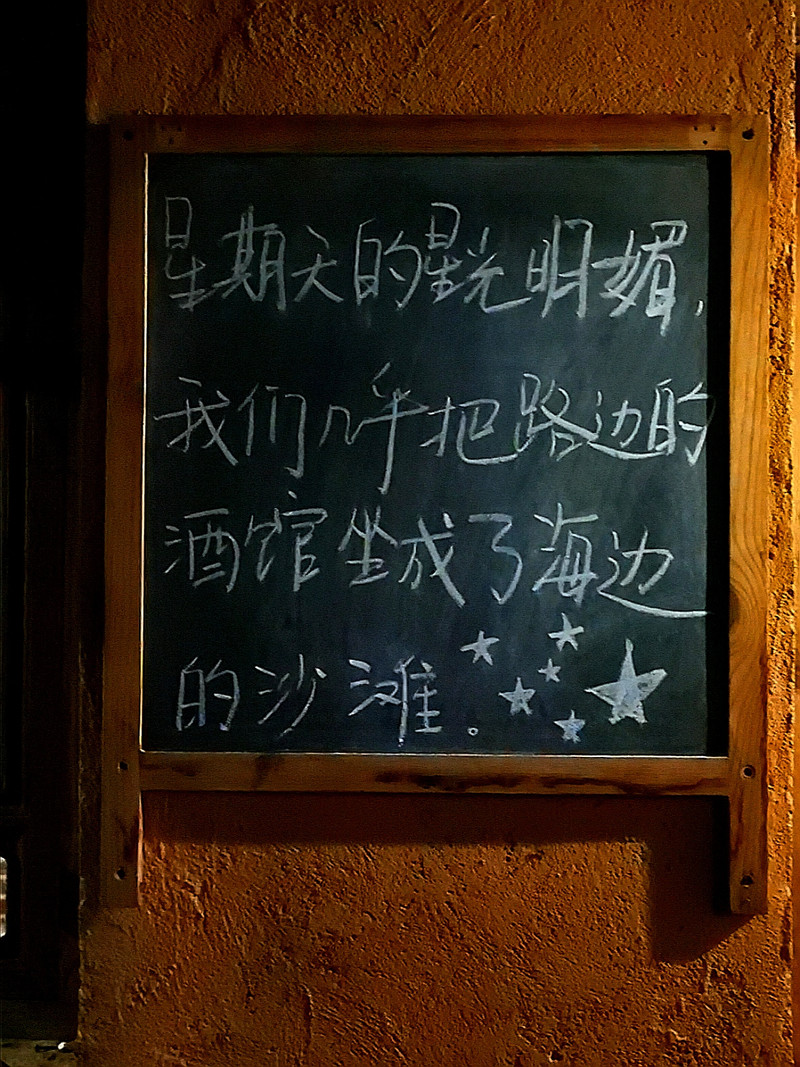 星期天的星光明媚,
我们几乎把路边的
酒馆坐成了海边
的沙滩。